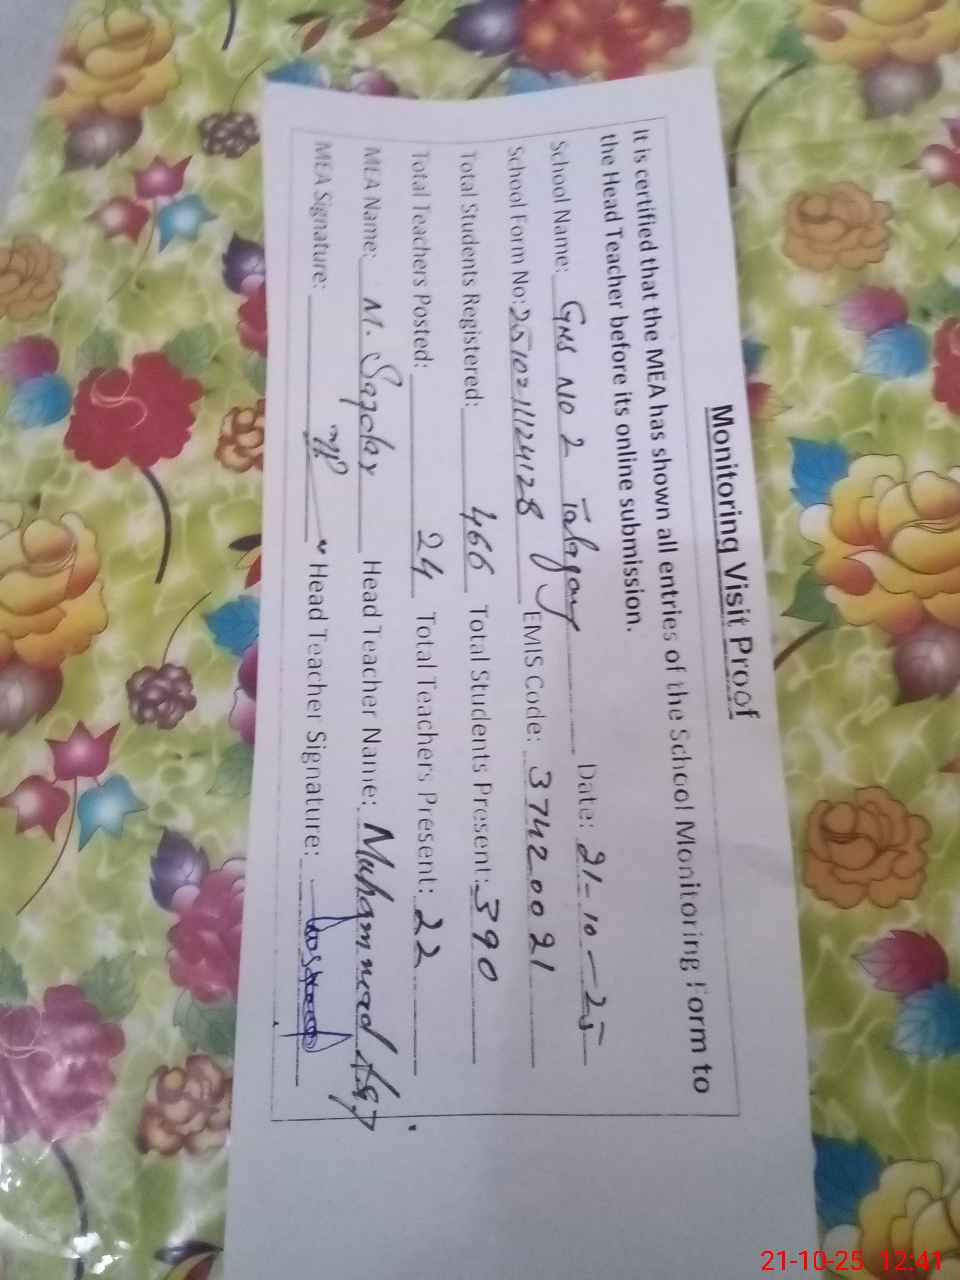 Monitoring Visit Proof
It is certified that the MEA has shown all entries of the School Monitoring Form to
the Head Teacher before its online submission.
School Name: GHS NO 2 Talagang Date: 21-10-25
School Form No: 251021124128 EMIS Code: 37420021
Total Students Registered: 466 Total Students Present: 390
Total Teachers Posted: 24 Total Teachers Present: 22
MEA Name: M. Head Teacher Name: Muhammad
MEA Signature: Head Teacher Signature:
21-10-25 12:41